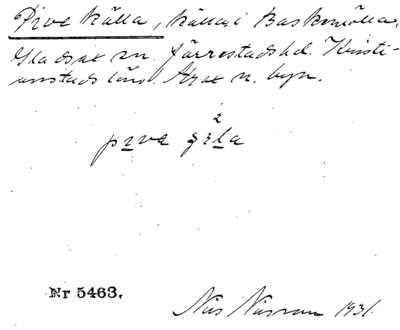 Pive källa, källa i Baskemölla,
Gladsax sn. Järrestads hd. Kristi-
anstads län. Strax n. byn.
2
Nr 5463.
Nils Nilsson 1931.